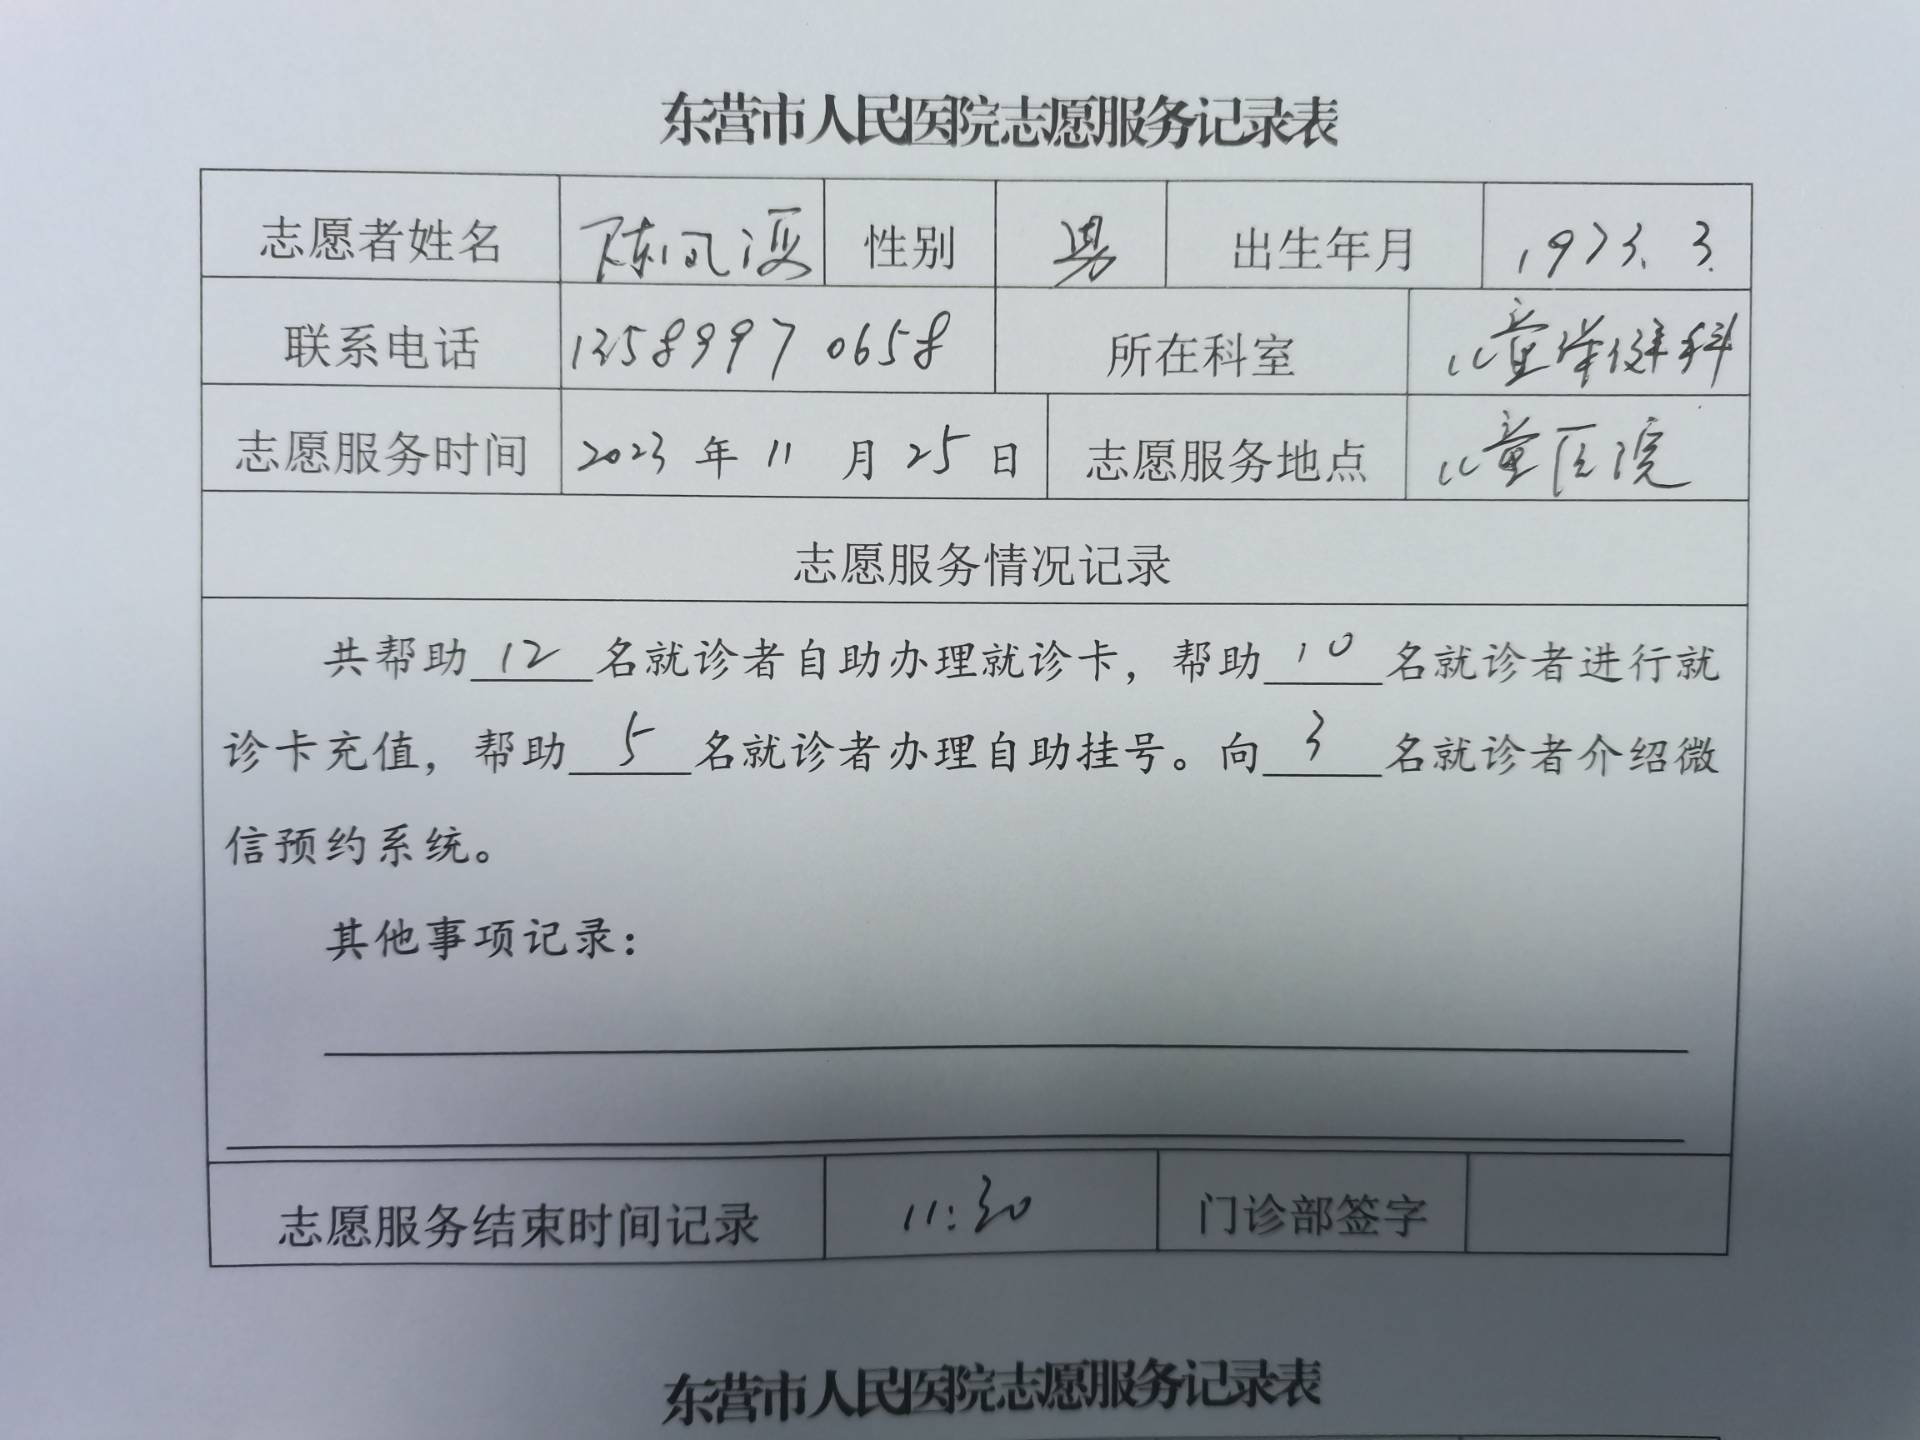 东营市人民医院志愿服务记录表
志愿者姓名 陈风 性别 男 出生年月 1973.3.
联系电话 13589970658 所在科室 儿童保健科
志愿服务时间 2023年11月25日 志愿服务地点 儿童医院
志愿服务情况记录
共帮助12名就诊者自助办理就诊卡，帮助10名就诊者进行就
诊卡充值，帮助5名就诊者办理自助挂号。向3名就诊者介绍微
信预约系统。
其他事项记录：
志愿服务结束时间记录 11:30 门诊部签字
东营市人民医院志愿服务记录表